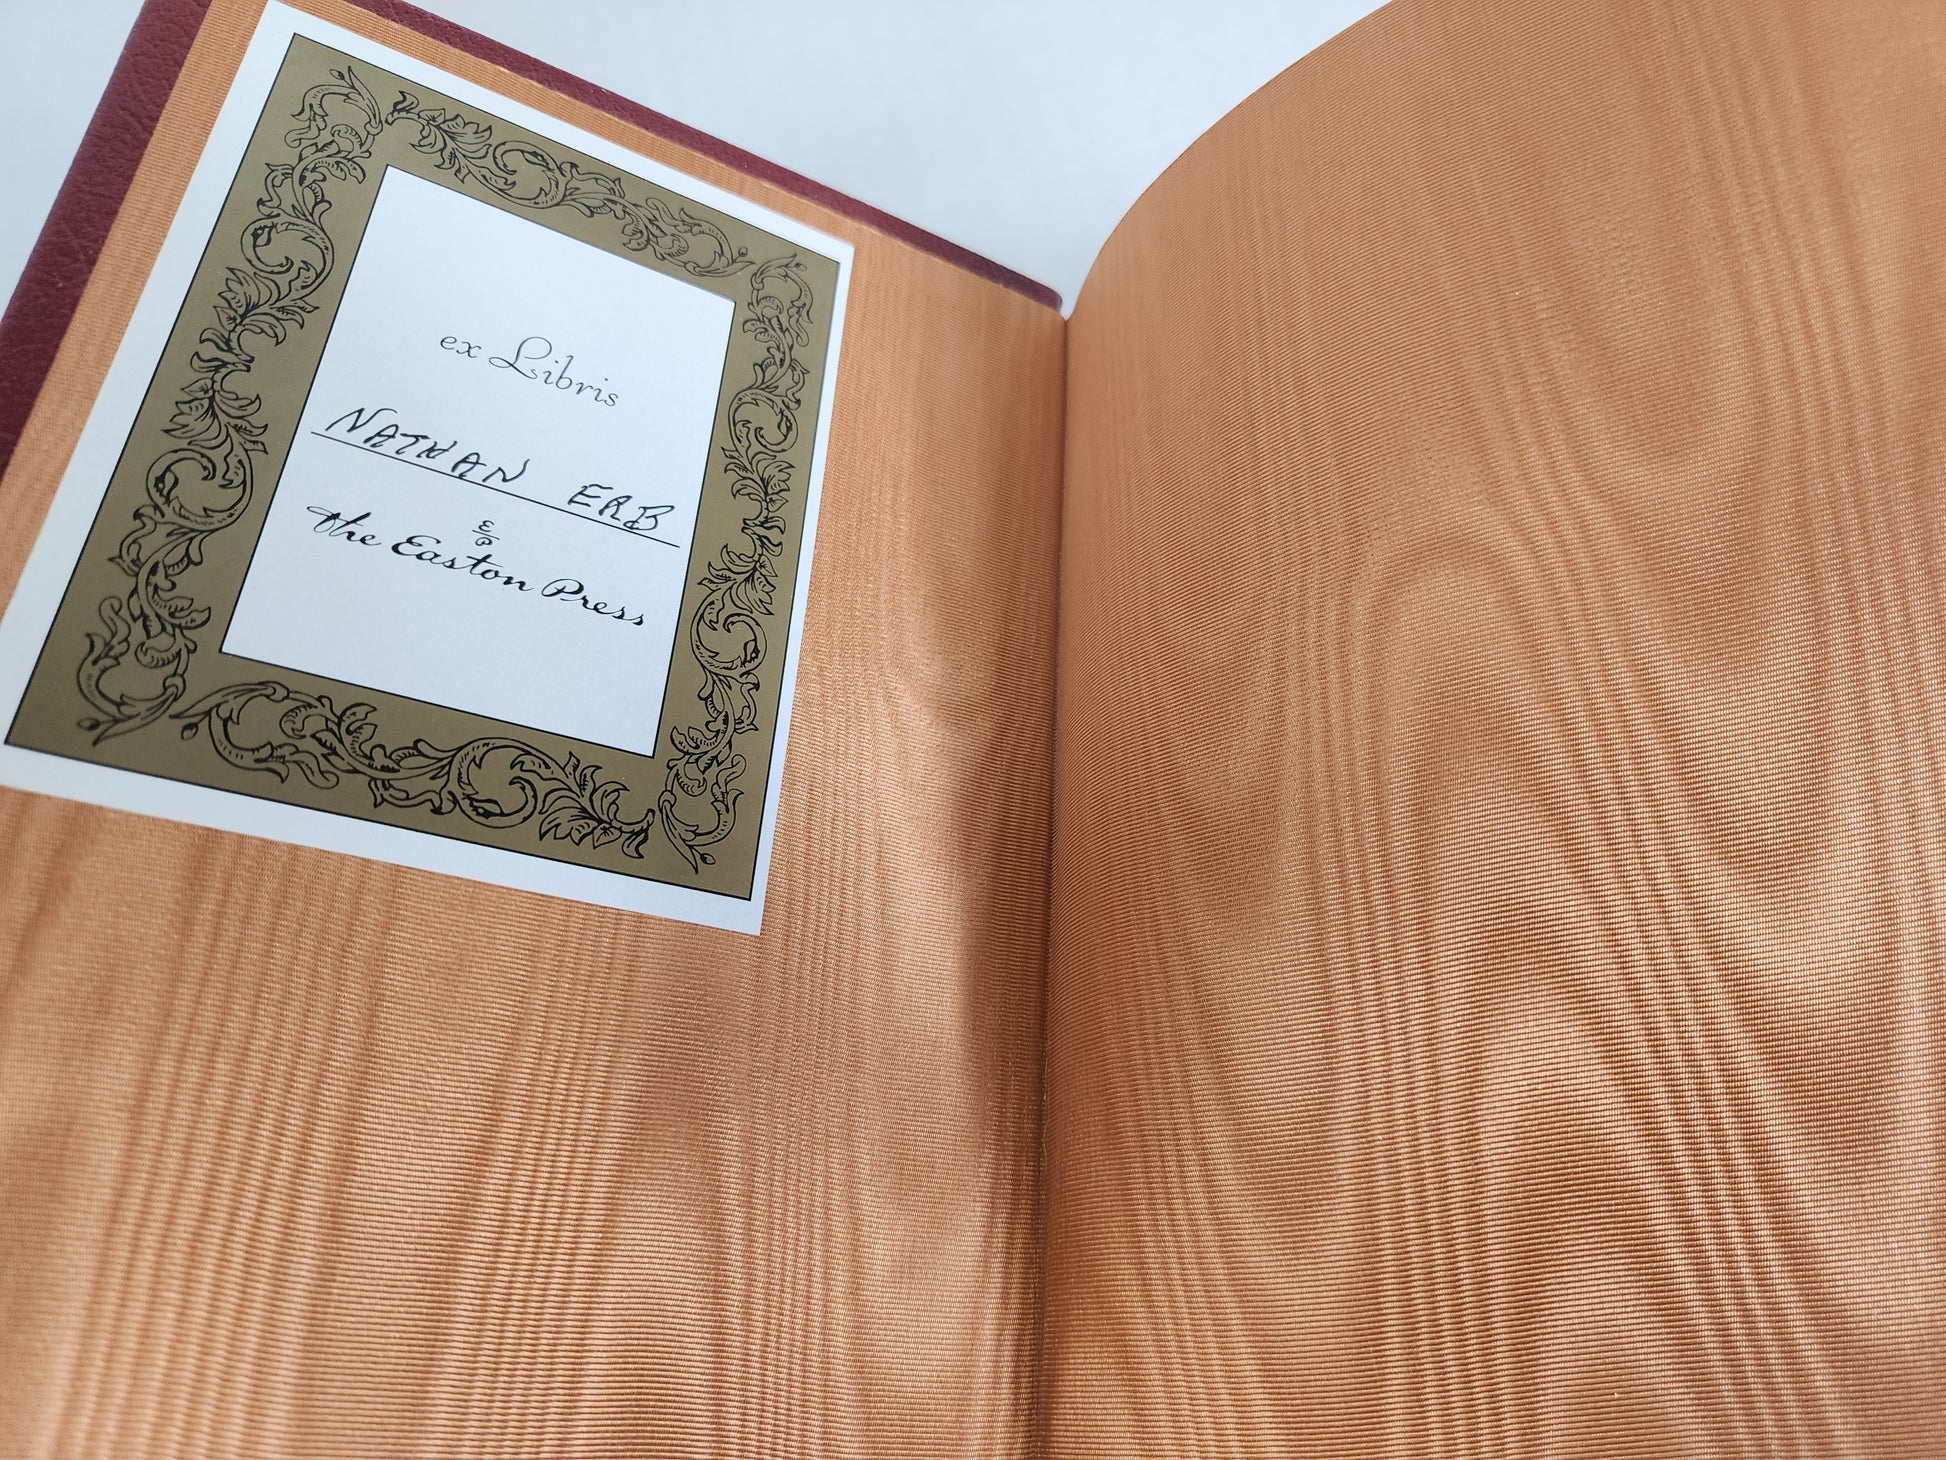 ex Libris
NATHAN ERB
E
P
the Easton Press